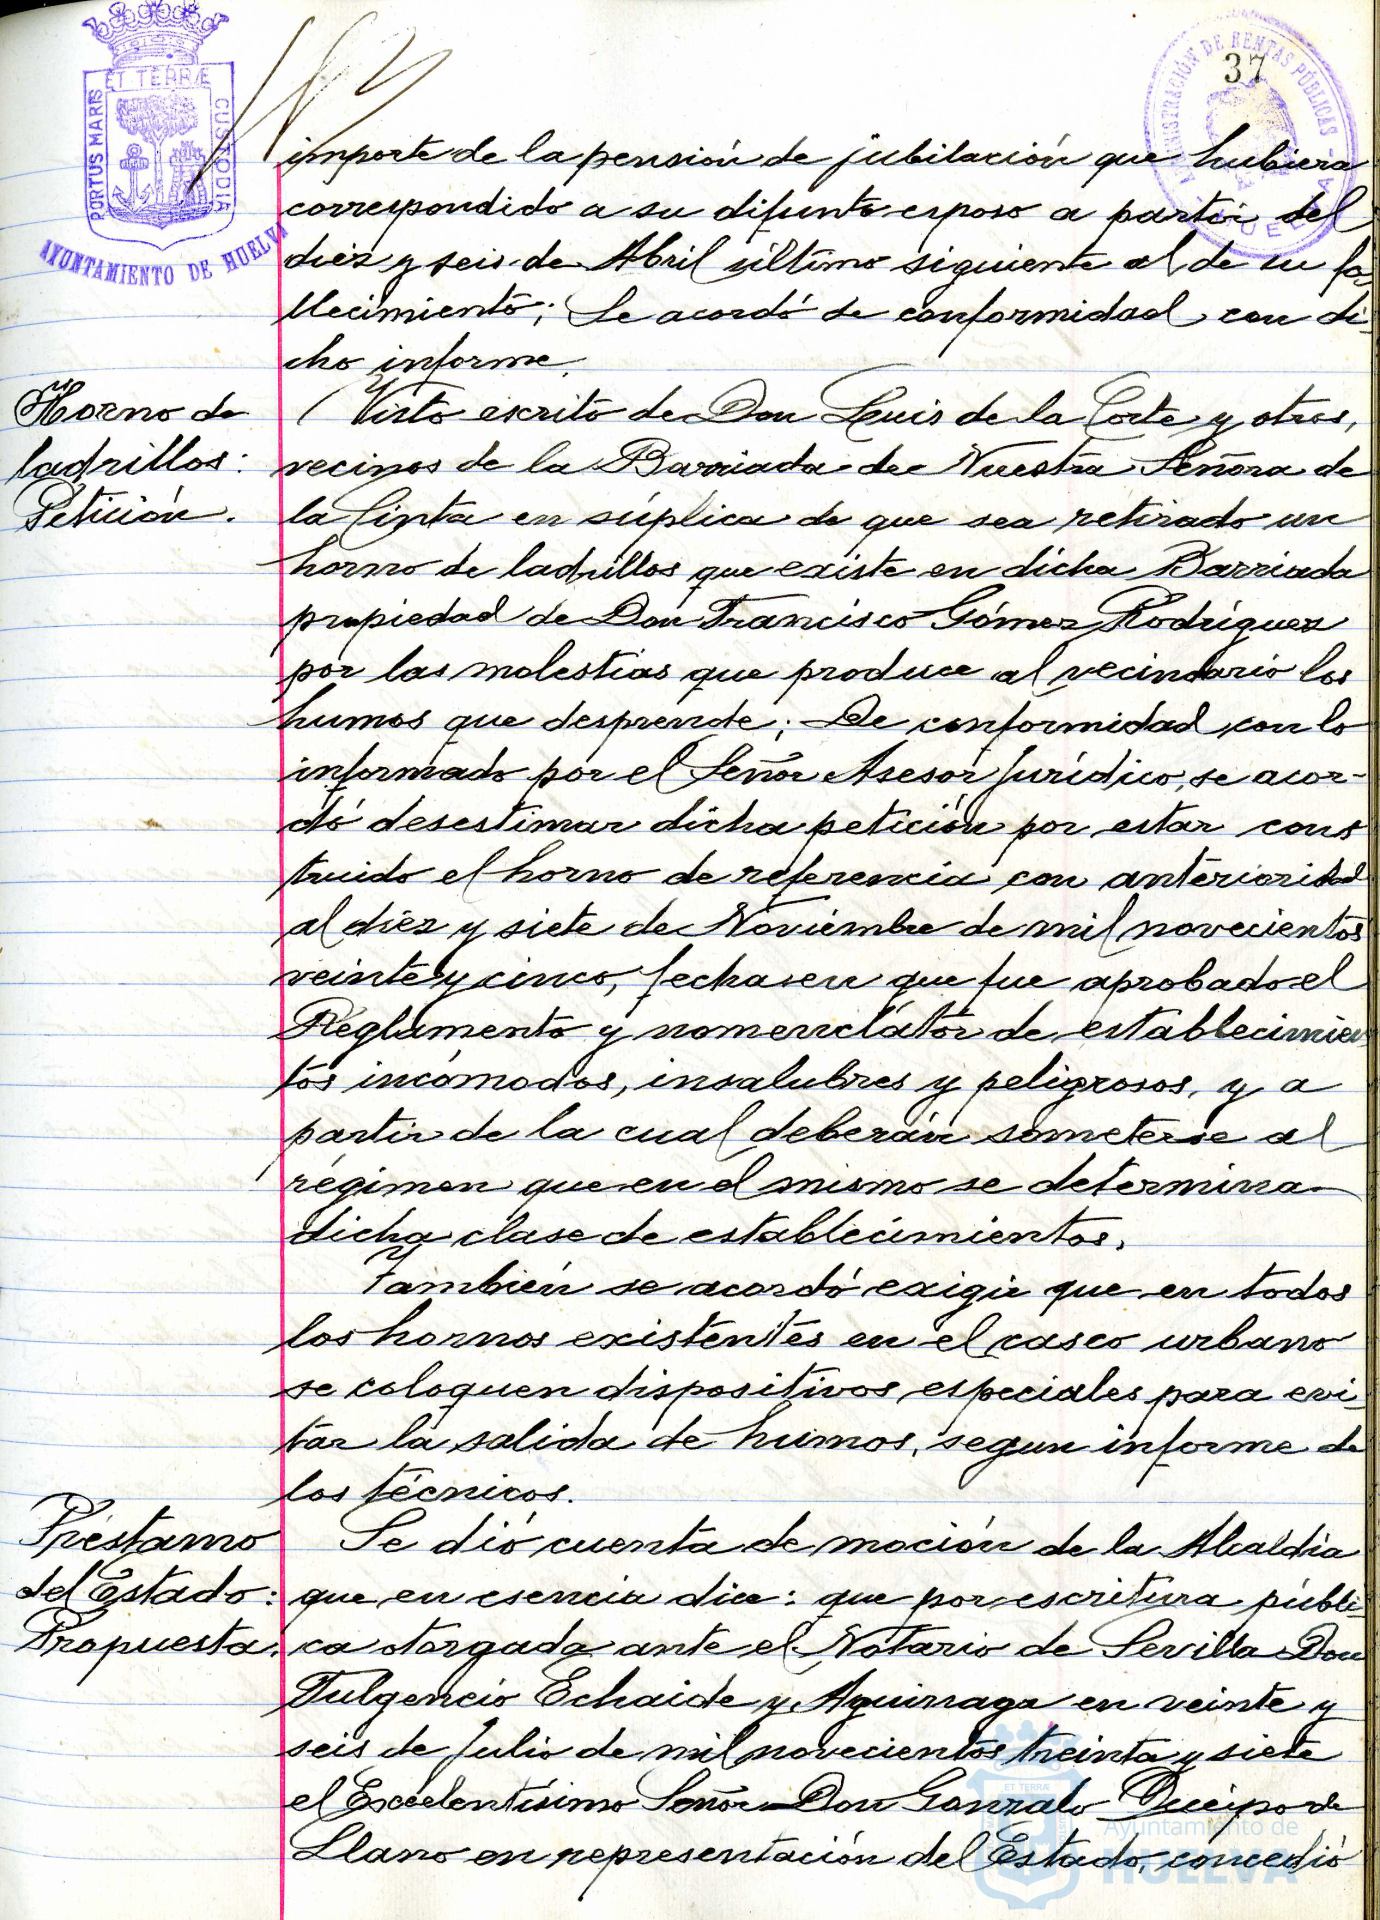 37
ET TERRÆ
PORTUS MARIS
CUSTODIA
AYUNTAMIENTO DE HUELVA
ADMINISTRACIÓN DE RENTAS PÚBLICAS
HUELVA
importe de la pensión de jubilación que hubiera
correspondido a su difunto esposo a partir del
diez y seis de Abril último siguiente al de su fa-
llecimiento; Se acordó de conformidad con di-
cho informe.
Horno de
ladrillos:
Petición.
Visto escrito de Don Luis de la Corte y otros,
vecinos de la Barriada de Nuestra Señora de
la Cinta en súplica de que sea retirado un
horno de ladrillos que existe en dicha Barriada
propiedad de Don Francisco Gómez Rodríguez
por las molestias que produce al vecindario los
humos que desprende; De conformidad con lo
informado por el Señor Asesor Jurídico, se acor-
dó desestimar dicha petición por estar cons
truido el horno de referencia con anterioridad
al diez y siete de Noviembre de mil novecientos
veinte y cinco, fecha en que fue aprobado el
Reglamento y nomenclátor de establecimien
tos incómodos, insalubres y peligrosos, y a
partir de la cual deberán someterse al
régimen que en el mismo se determina
dicha clase de establecimientos.
También se acordó exigir que en todos
los hornos existentes en el casco urbano
se coloquen dispositivos especiales para evi-
tar la salida de humos, segun informe de
los técnicos.
Préstamo
del Estado:
Propuesta.
Se dió cuenta de moción de la Alcaldía
que en esencia dice: que por escritura públi-
ca otorgada ante el Notario de Sevilla Don
Fulgencio Echaide y Aguinaga en veinte y
seis de Julio de mil novecientos treinta y siete
el Excelentísimo Señor Don Gonzalo Queipo de
Llano en representación del Estado, concedió
ET TERRÆ
Ayuntamiento de
HUELVA